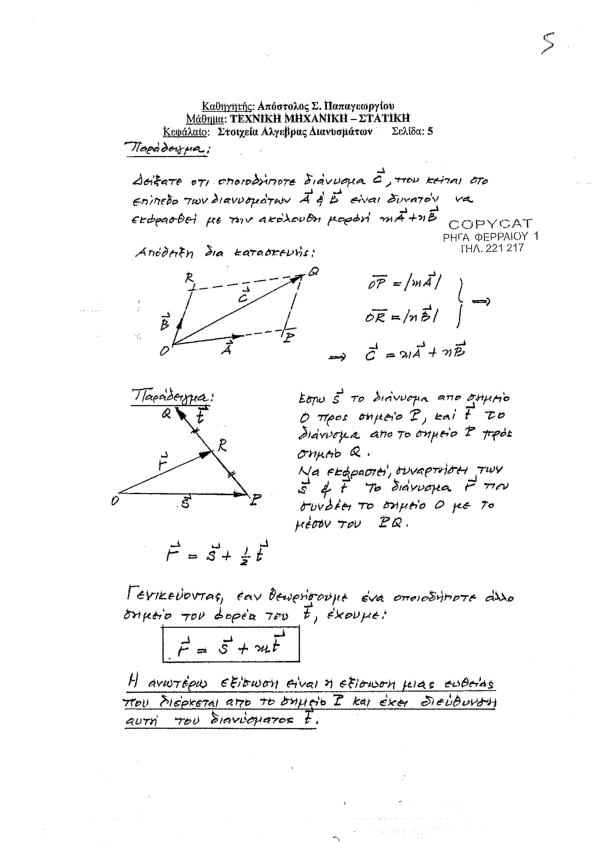 5
Καθηγητής: Απόστολος Σ. Παπαγεωργίου
Μάθημα: ΤΕΧΝΙΚΗ ΜΗΧΑΝΙΚΗ – ΣΤΑΤΙΚΗ
Κεφάλαιο: Στοιχεία Αλγεβρας Διανυσμάτων Σελίδα: 5
Παράδειγμα:
Δείξατε οτι οποιοδήποτε διάνυσμα C⃗, που κείται στο
επίπεδο των διανυσμάτων A⃗ & B⃗ είναι δυνατόν να
εκφρασθεί με την ακόλουθη μορφή mA⃗+nB⃗
COPYCAT
ΡΗΓΑ ΦΕΡΡΑΙΟΥ 1
ΤΗΛ. 221 217
Απόδειξη δια κατασκευής:
R
Q
C⃗
B⃗
A⃗
O
P
OP = |mA⃗|
OR = |nB⃗|
} ⟹
⟹ C⃗ = mA⃗ + nB⃗
Παράδειγμα:
Q
t⃗
R
r⃗
O
s⃗
P
Εστω s⃗ το διάνυσμα απο σημείο
O προς σημείο P, και t⃗ το
διάνυσμα απο το σημείο P πρός
σημείο Q.
Να εκφραστεί, συναρτήσει των
s⃗ & t⃗ το διάνυσμα r⃗ που
συνδέει το σημείο O με το
μέσον του PQ.
r⃗ = s⃗ + 1/2 t⃗
Γενικεύοντας, εαν θεωρήσουμε ένα οποιοδήποτε άλλο
σημείο του φορέα του t⃗, έχουμε:
r⃗ = s⃗ + mt⃗
Η ανωτέρω εξίσωση είναι η εξίσωση μιας ευθείας
που διέρχεται απο το σημείο P και έχει διεύθυνση
αυτή του διανύσματος t⃗.